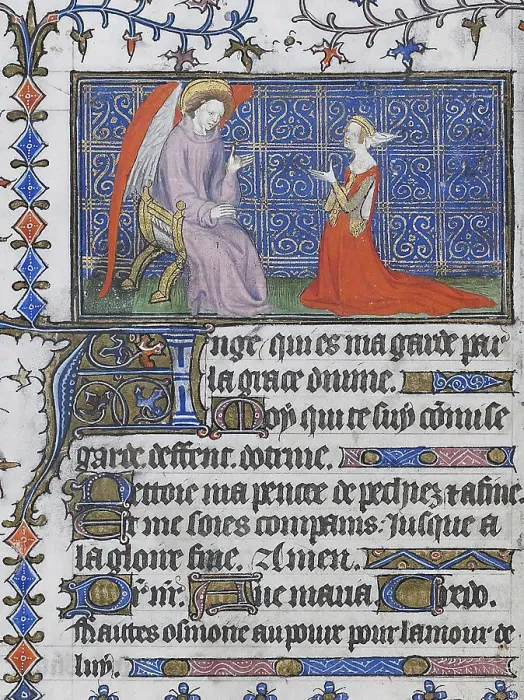 Ange qui es ma garde par
la grace diuine.
Moy qui te suy cōmise
garde deffent. dotrine.
Nettoie ma pencee de pechiez ⁊ afine
Et me soies compains. Jusque a
la gloire fine. Amen.
Pr̄ nr̄. Aue maria. Credo.
Fhautes osmone au poure pour lamour de
luy.